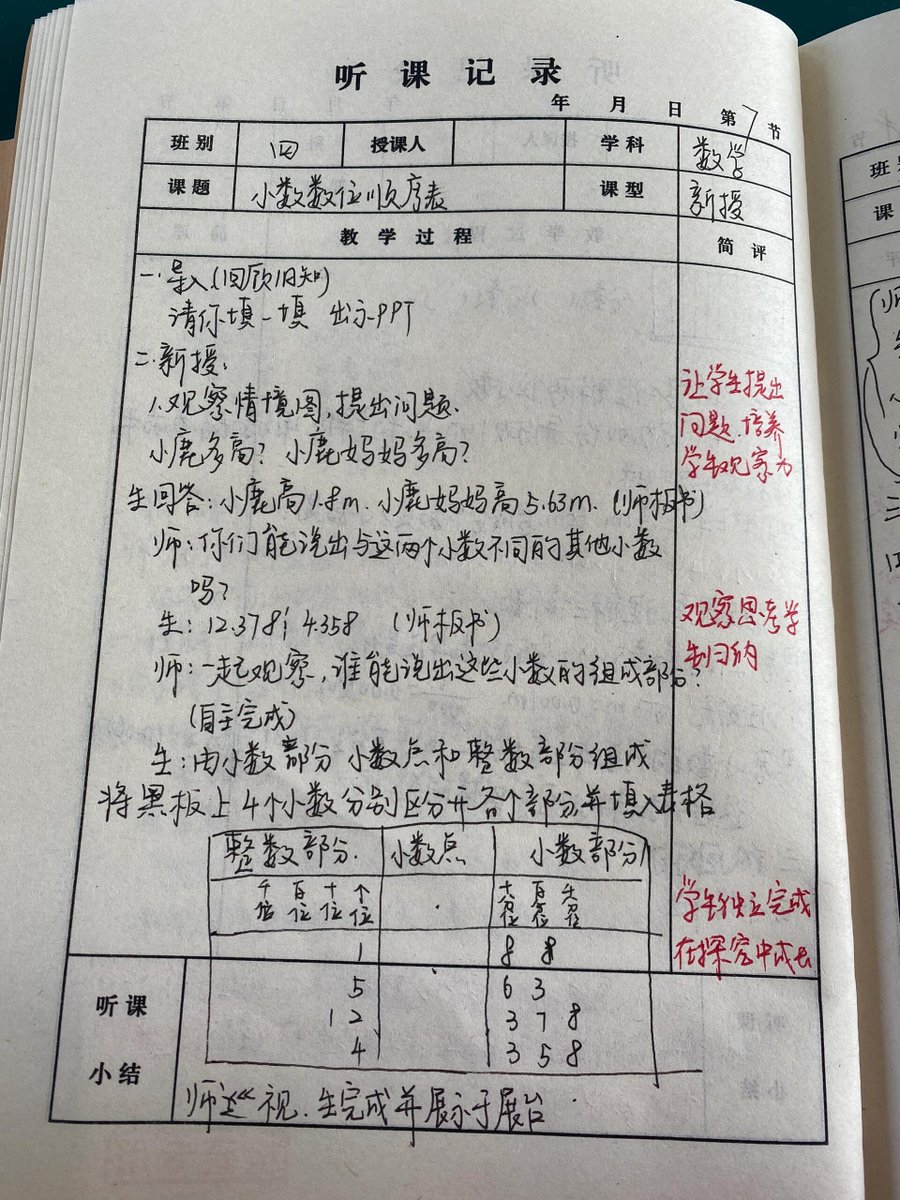 听课记录
年 月 日 第7节
班别 四 授课人 学科 数学
课题 小数数位顺序表 课型 新授
教学过程 简评
一.导入(回顾旧知)
请你填一填 出示PPT
二.新授:
1.观察情境图,提出问题.
小鹿多高? 小鹿妈妈多高?
生回答:小鹿高1.8m.小鹿妈妈高5.63m.(师板书)
师:你们能说出与这两个小数不同的其他小数
吗?
生:12.378 4.358 (师板书)
师:一起观察,谁能说出这些小数的组成部分?
(自主完成)
生:由小数部分 小数点和整数部分组成
将黑板上4个小数分别区分开各个部分,并填入表格
让学生提出
问题.培养
学生观察力
观察思考学
生归纳
学生独立完成
在探究中成长
整数部分. 小数点 小数部分
千位 百位 十位 个位 . 十分位 百分位 千分位
1 8
5 6 3
12 3 7 8
4 3 5 8
听课
小结
师巡视.生完成并展示于展台.